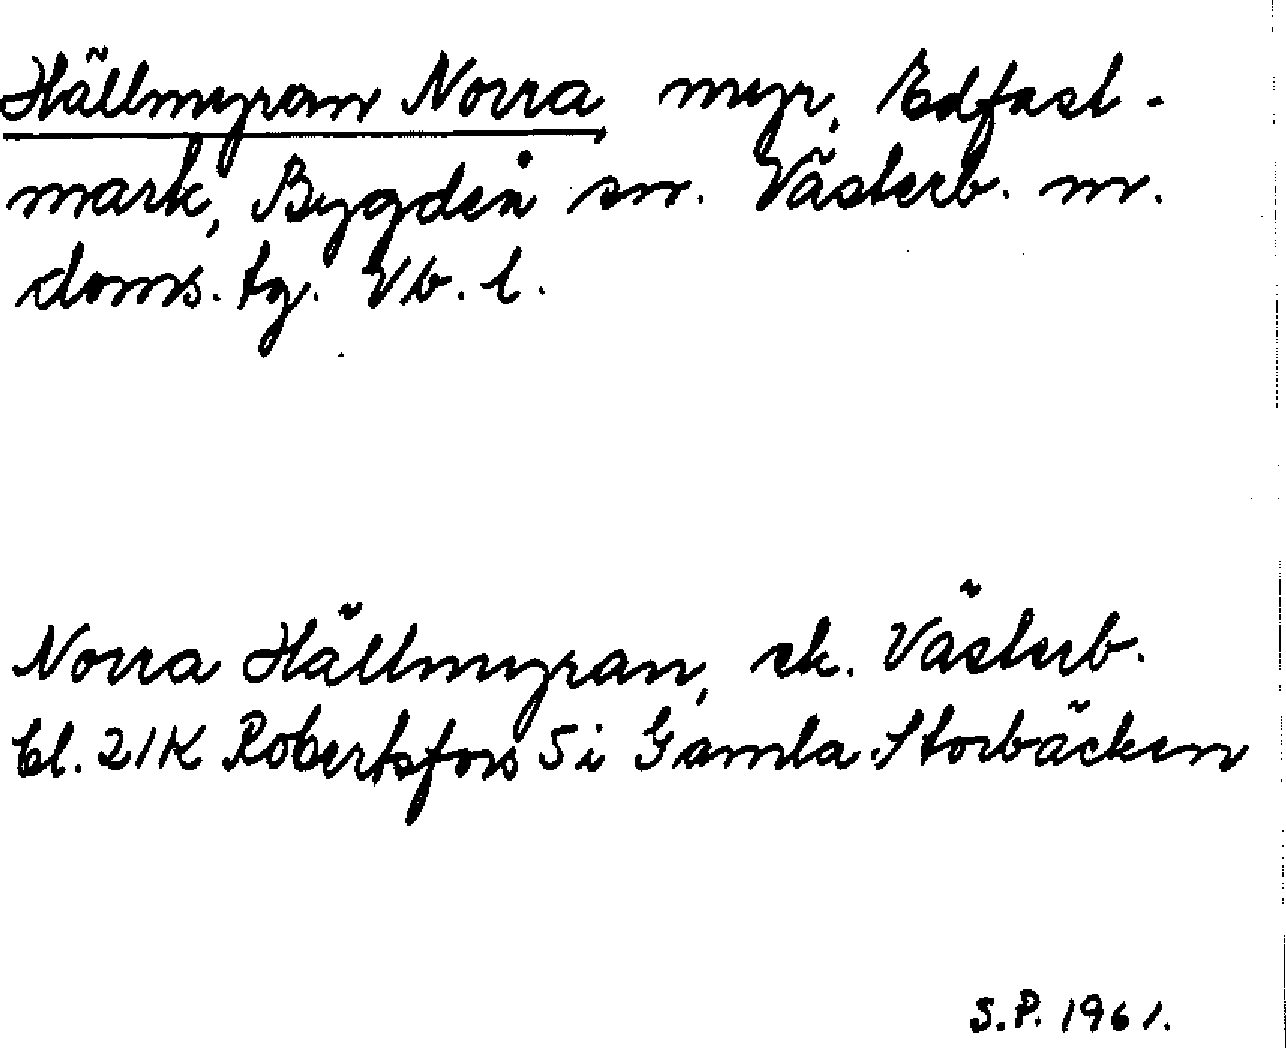 Hällmyran Norra, myr, Edfast-
mark, Bygdeå sn. Västerb. n.
doms. tg. Vb. l.
Norra Hällmyran, ek. Västerb.
bl. 21K Robertsfors 5 i Gamla Storbäcken
S.P. 1961.